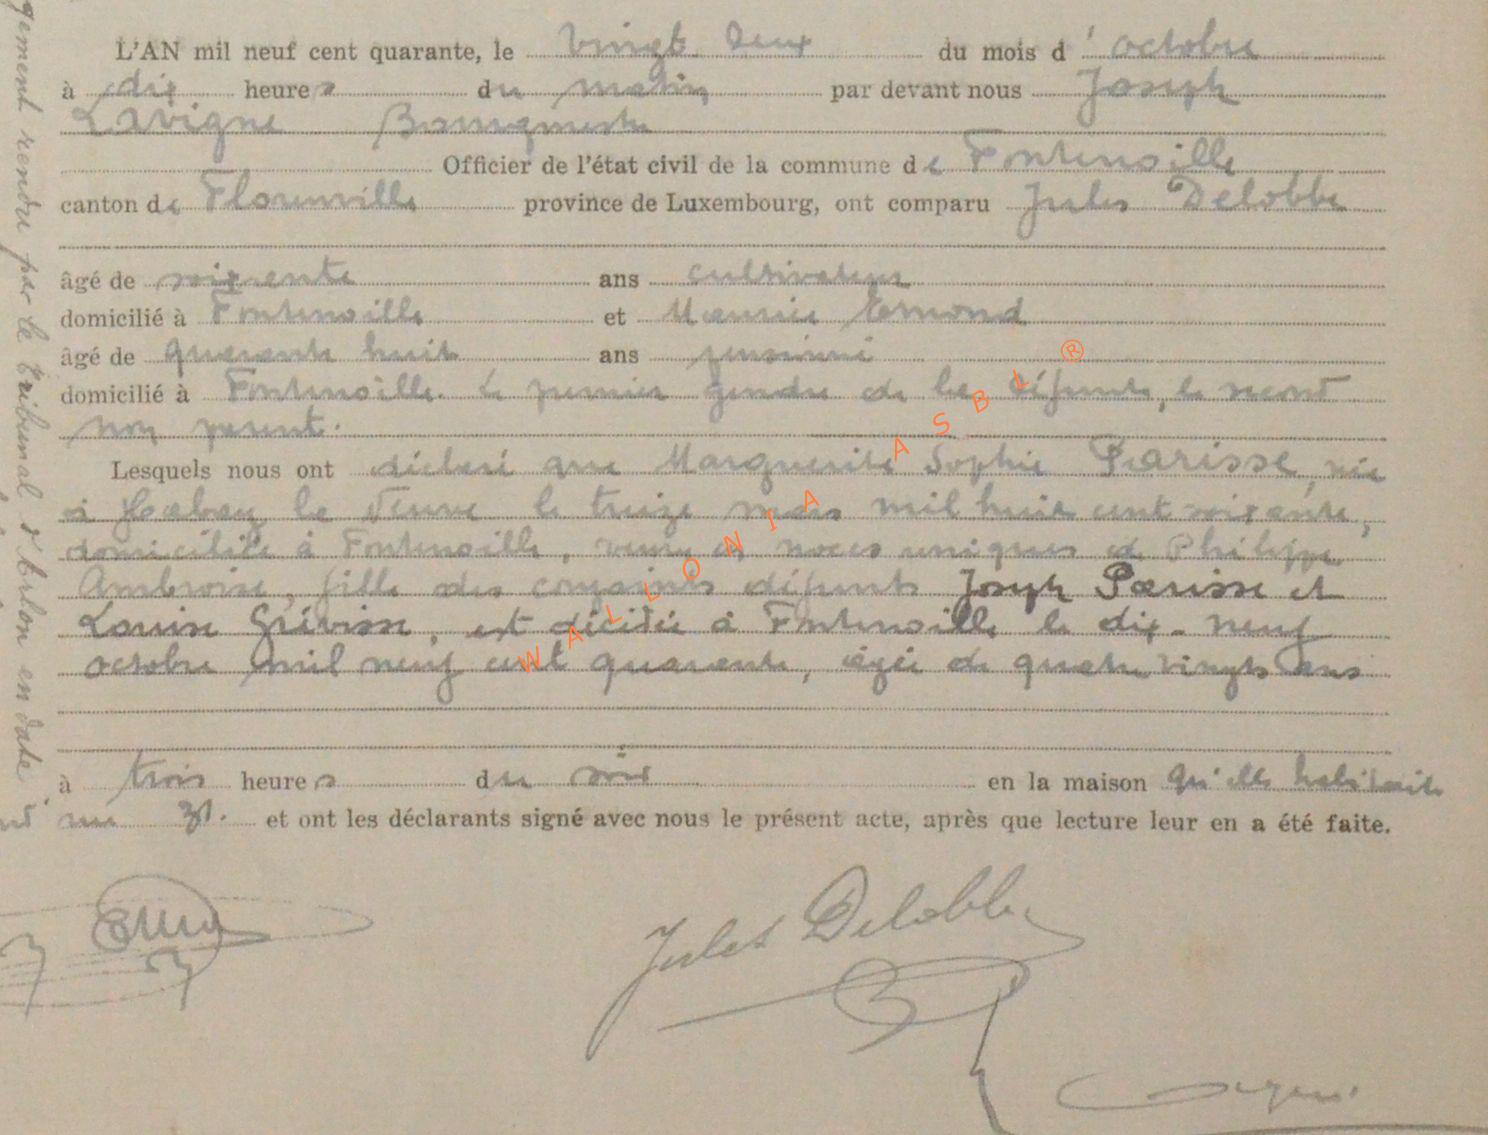 L'AN mil neuf cent quarante, le vingt deux du mois d' octobre
à dix heures du matin par devant nous Joseph
Lavigne Bourgmestre
Officier de l'état civil de la commune de Fontenoille
canton de Florenville province de Luxembourg, ont comparu Jules Delobbe
âgé de soixante ans cultivateur
domicilié à Fontenoille et Maurice Emond
âgé de quarante huit ans pensionné
domicilié à Fontenoille. Le premier gendre de la défunte, le second
non parent.
Lesquels nous ont déclaré que Marguerite Sophie Parisse, née
à Habay la Neuve le treize mars mil huit cent soixante,
domiciliée à Fontenoille, veuve en noces uniques de Philippe
Ambroise, fille des conjoints défunts Joseph Parisse et
Louise Grévisse, est décédée à Fontenoille le dix-neuf
octobre mil neuf cent quarante, âgée de quatre vingts ans
à trois heures du soir en la maison qu'elle habitait
rue 31. et ont les déclarants signé avec nous le présent acte, après que lecture leur en a été faite.
Jules Delobbe
gement rendu par le tribunal d'Arlon en date
WALLONIA ASBL ®